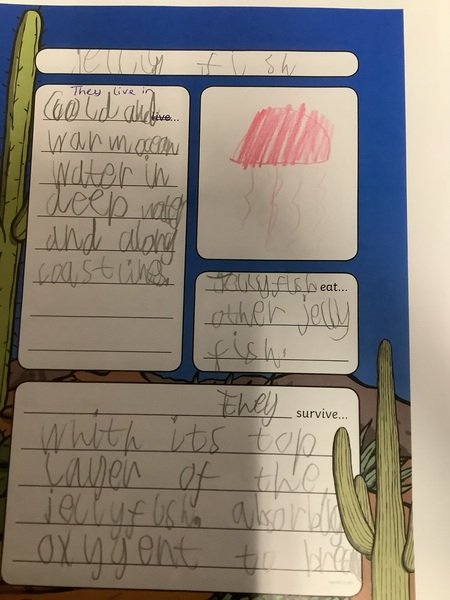 jelly fish
They live in
Coold and live...
warm ocean
water in
deep water
and along
coastlines.
Jellyfish eat...
other jelly
fish.
they survive...
whith its top
layer of the
jellyfish. absorbly
oxygent to